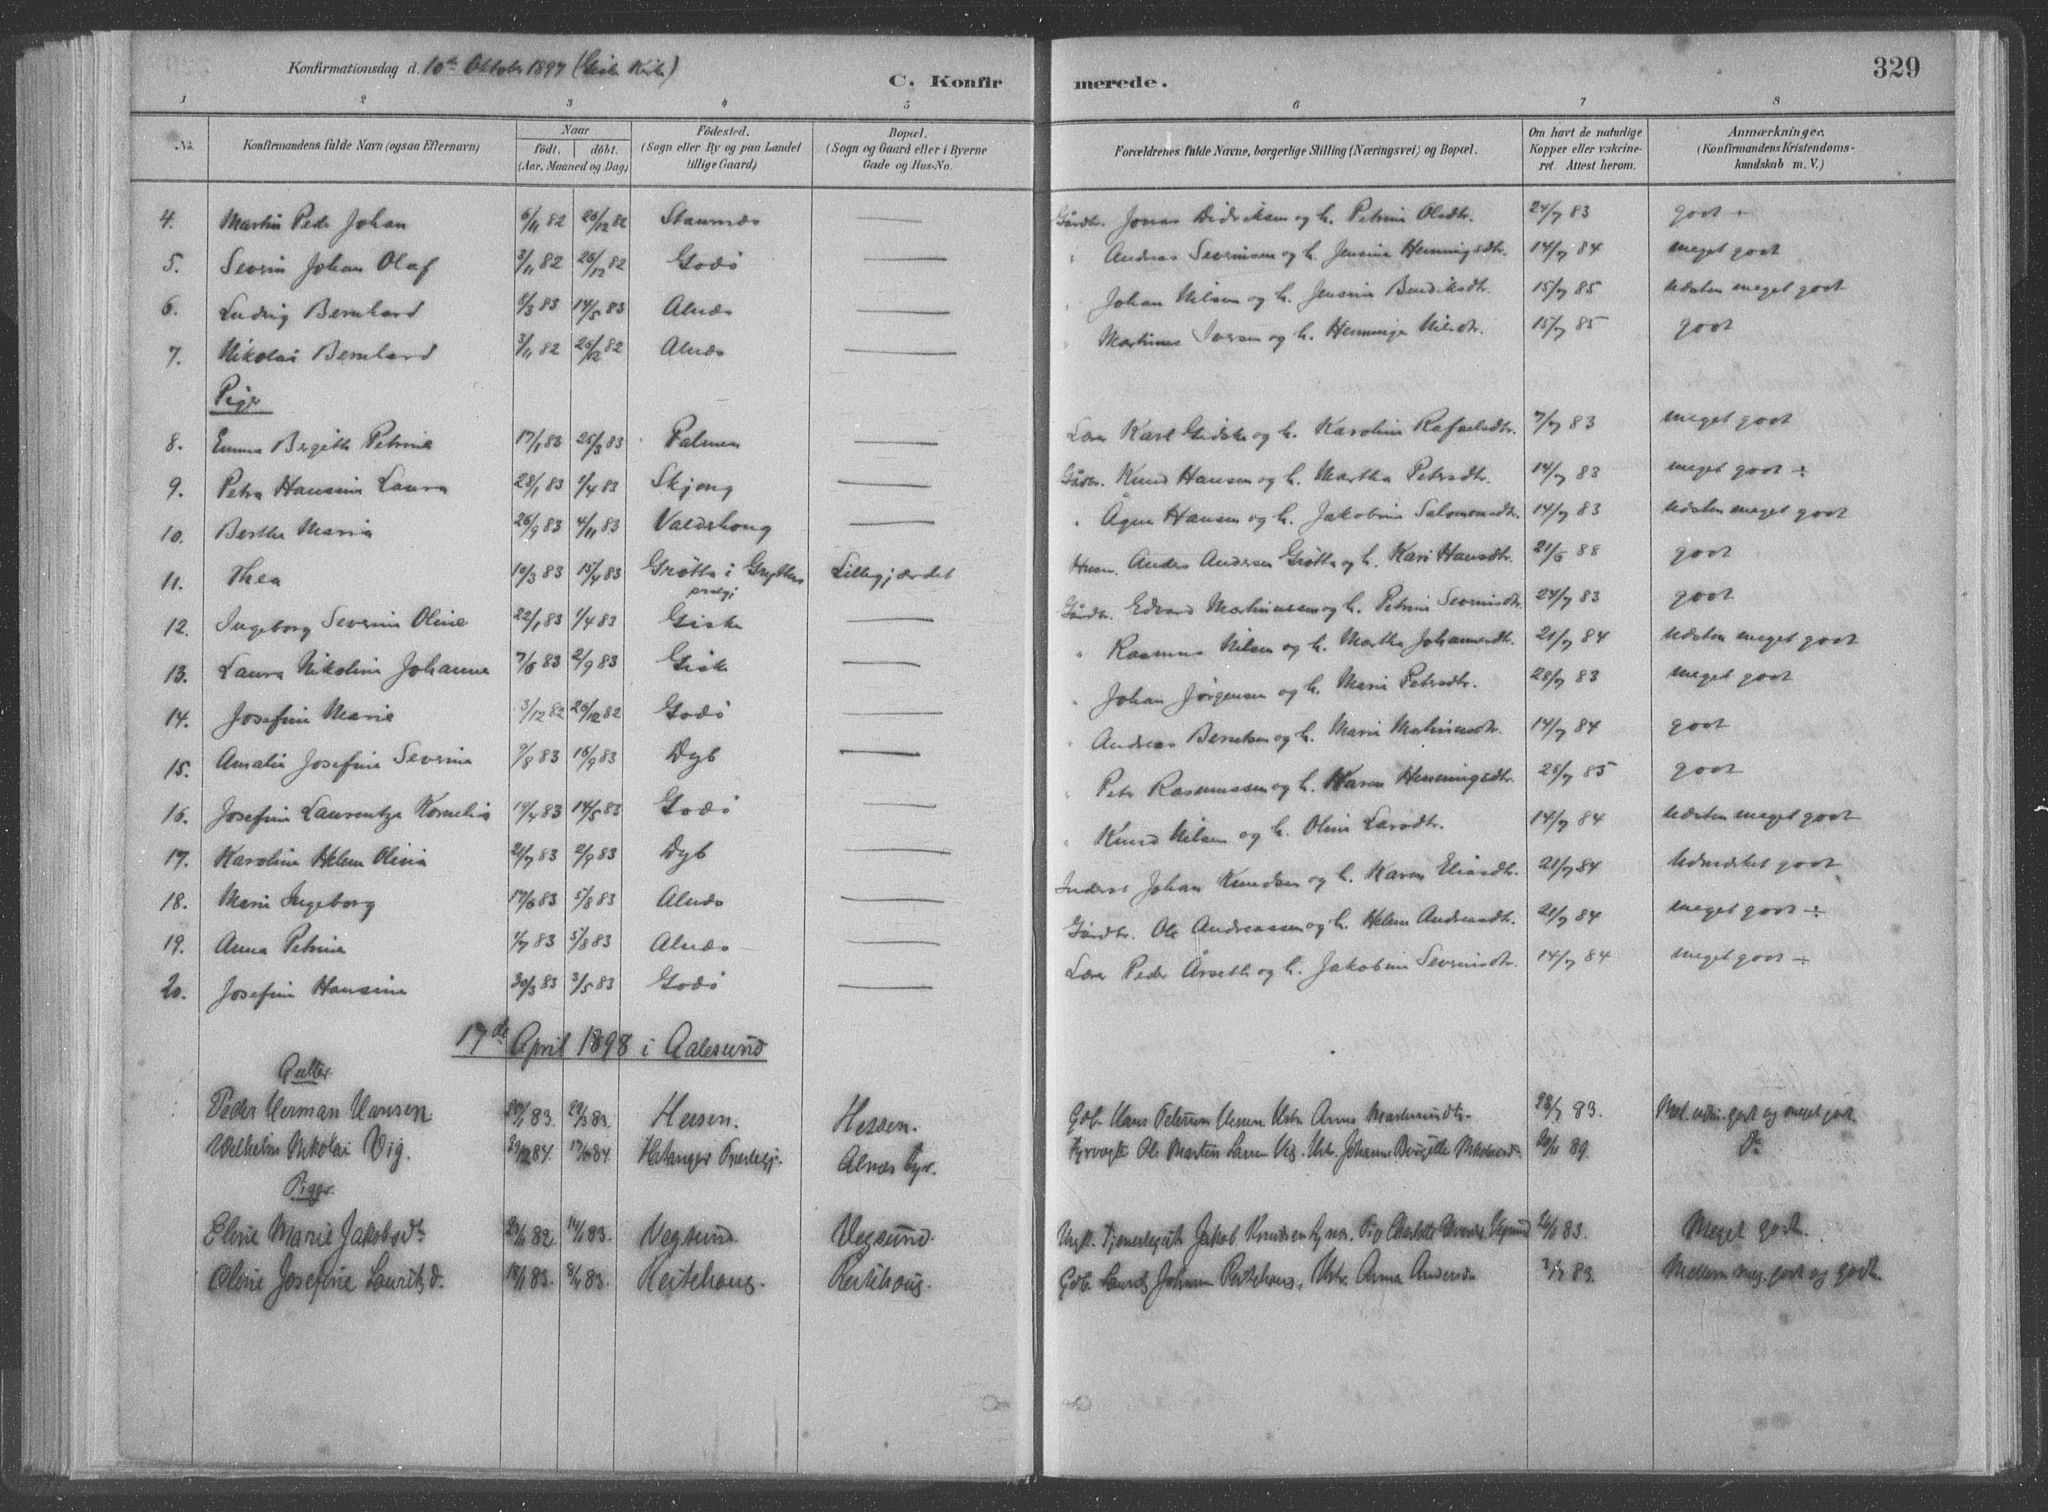 Konfirmationsdag d. 10de Oktober 1897 (Giske Kirke)
C. Konfirmerede.
329
1 2 3 4 5 6 7 8
No. Konfirmandens fulde Navn (ogsaa Efternavn) Naar födt. döbt. (Aar, Maaned og Dag) Födested. (Sogn eller By og paa Landet tillige Gaard) Bopæl. (Sogn og Gaard eller i Byerne Gade og Hus-No. Forældrenes fulde Navne, borgerlige Stilling (Næringsvei) og Bopæl. Om havt de naturlige Kopper eller vakcineret. Attest herom. Anmærkninger. (Konfirmandens Kristendomskundskab m. V.)
4. Martin Peder Johan 6/11 82 26/12 82 Staurnæs — Gårdbr. Jonas Didriksen og h. Petrine Olsdtr. 24/7 83 godt ÷
5. Severin Johan Olaf 3/11 82 26/12 82 Godö — " Andreas Severinsen og h. Jensine Henningsdtr. 14/7 84 meget godt
6. Ludvig Bernhard 3 83 14/5 83 Alnæs — " Johan Nilsen og h. Jensine Bendiksdtr. 15/7 85 næsten meget godt
7. Nikolai Bernhard 3/11 82 26/12 82 Alnæs — " Martinus Iversen og h. Henninge Nilsdtr. 15/7 85 godt
Piger
8. Emma Bergitte Petrine 17/1 83 25/3 83 Palmen — Lærer Karl Gidske og h. Karoline Rafaelsdtr. 7/7 83 meget godt
9. Petra Hansine Laura 28/1 83 1/4 83 Skjong — Gårdbr. Knud Hansen og h. Martha Petersdtr. 14/7 83 meget godt ÷
10. Berthe Marie 26/9 83 4/11 83 Valdshoug — " Ågen Hansen og h. Jakobine Salomonsdtr. 14/7 83 næsten meget godt
11. Thea 10/3 83 15/4 83 Grøtta i Gryttens prstgj Lillegjærdet Husm. Anders Andersen Grøtta og h. Kari Hansdtr. 21/6 88 godt
12. Ingeborg Severine Oline 22/1 83 1/4 83 Giske — Gårdbr. Edvard Martinussen og h. Petrine Severinsdtr. 24/7 83 godt
13. Laura Nikoline Johanne 7/6 83 2/9 83 Giske — " Rasmus Nilsen og h. Martha Johannesdtr. 21/7 84 næsten meget godt
14. Josefine Marie 3/12 82 26/12 82 Godö — " Johan Jörgensen og h. Marie Petersdtr. 28/7 83 meget godt
15. Amalie Josefine Severine 9/8 83 16/9 83 Dyb — " Andreas Berntsen og h. Marie Martinusdtr. 14/7 84 godt
16. Josefine Laurentze Kornelia 19/4 83 14/5 83 Godö — " Peter Rasmussen og h. Karen Henningsdtr. 25/7 85 godt
17. Karoline Helene Olivia 21/7 83 2/9 83 Dyb — " Knud Nilsen og h. Oline Larsdtr. 14/7 84 næsten meget godt
18. Marie Ingeborg 17/6 83 5/8 83 Alnæs — Inderst Johan Knudsen og h. Karen Eliasdtr. 21/7 84 Udmærket godt
19. Anna Petrine 1/7 83 5/8 83 Alnæs — Gårdbr. Ole Andreassen og h. Helene Andreasdtr. 21/7 84 meget godt ÷
20. Josefine Hansine 30/3 83 3/5 83 Godö — Lærer Peder Årseth og h. Jakobine Severinsdtr. 14/7 84 meget godt ÷
17de April 1898 i Aalesund
Gutter
Peder Herman Hansen 83. 83. Hessen. Hessen. Gdb. Hans Petersen Hessen Hstr. Anna 83. Mel. udm. godt og meget godt
Vilhelm Nikolai Vig. 84. 84 Alnæs Fyr. Fyrvogt Ole Martin Larsen Vig. Hstr. Johanne Bergitte 89. Do
Piger
Eline Marie Jakobsdtr 82. 14/1 83. Vegsund Vegsund Ungk. Tjenestegut Jakob Knudsen 83. Meget godt.
Oline Josefine Lauritzd. 83. 83. Reitehaug. Reitehaug. Gdb. Lauritz Johnsen Reitehaug, Hstr. Anna 83. Mellem meg. godt og godt.